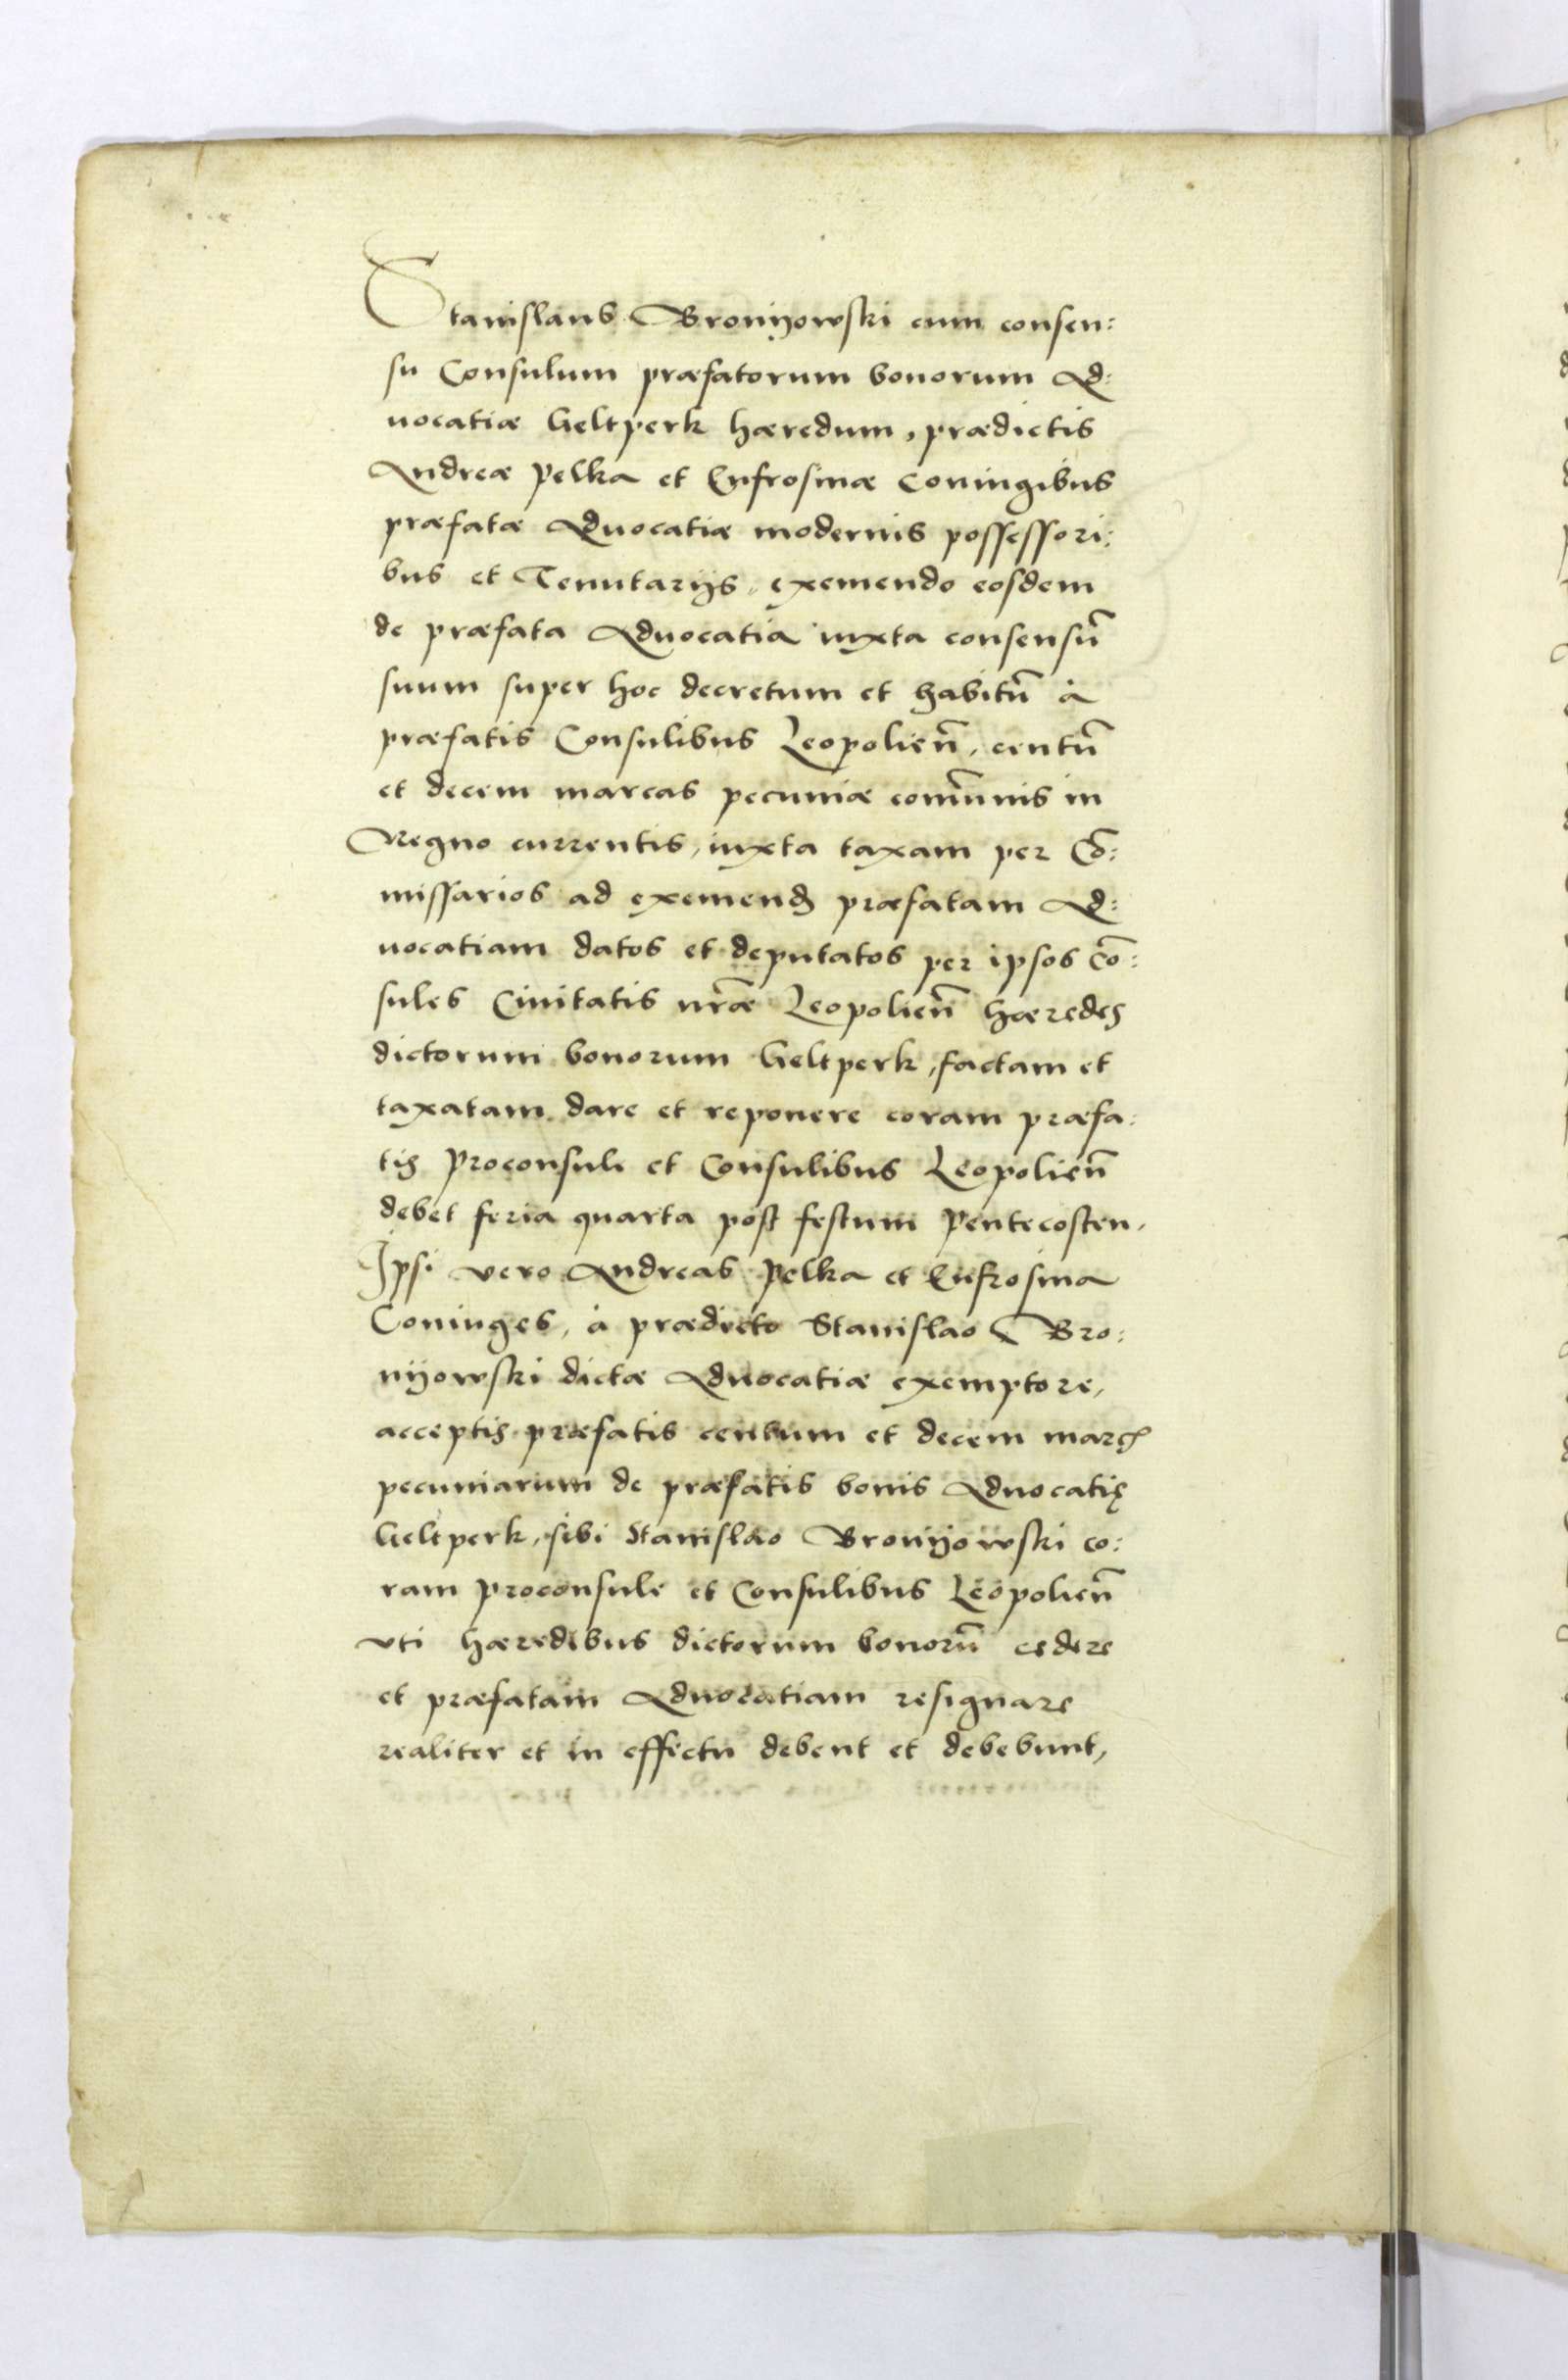 Stanislaus Bronijowski cum consen:
su Consulum præfatorum bonorum Ad:
uocatiæ Geltperk hæredum, prædictis
Andreæ Pelka et Eufrosinæ Coniugibus
præfatæ Aduocatiæ modernis possessori:
bus et Tenutarijs, exemendo eosdem
de præfata Aduocatia iuxta consensū
suum super hoc decretum et habitū à
præfatis Consulibus Leopolien̄, centū
et decem marcas pecuniæ com̄unis in
Regno currentis, iuxta taxam per Cō:
missarios ad exemend præfatam Ad:
uocatiam datos et deputatos per ipsos Cō:
sules Ciuitatis nr̄æ Leopolien̄ hæredes
dictorum bonorum Geltperk, factam et
taxatam dare et reponere coram præfa:
tis Proconsule et Consulibus Leopolien̄
debet feria quarta post festum Pentecosten.
Ipsi vero Andreas Pelka et Eufrosina
Coniuges, à prædicto Stanislao Bro:
nijowski dictæ Aduocatiæ exemptore,
acceptis præfatis centum et decem marc
pecuniarum de præfatis bonis Aduocatię
Geltperk, sibi Stanislao Bronijowski co:
ram proconsule et Consulibus Leopolien̄
vti hæredibus dictorum bonorū cedere
et præfatam Aduocatiam resignare
realiter et in effectu debent et debebunt,